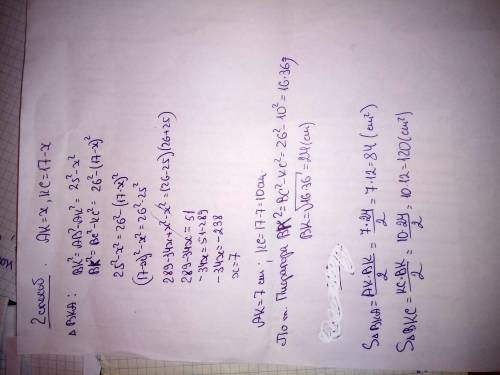 2 способ. AK=x, KC=17-x
Δ BKA:
BK²=AB²-AK²=25²-x²
BK²=BC²-KC²=26²-(17-x)²
25²-x²=26²-(17-x)²
(17-x)²-x²=26²-25²
289-34x+x²-x²=(26-25)(26+25)
289-34x=51
-34x=51-289
-34x=-238
x=7
AK=7 cm; KC=17-7=10 cm
По т. Пифагора BK²=BC²-KC²=26²-10²=16·36
BK=√16·36=24(cm)
SΔBKA=AK·BK/2=7·24/2=7·12=84 (cm²)
SΔBKC=KC·BK/2=10·24/2=10·12=120(cm²)